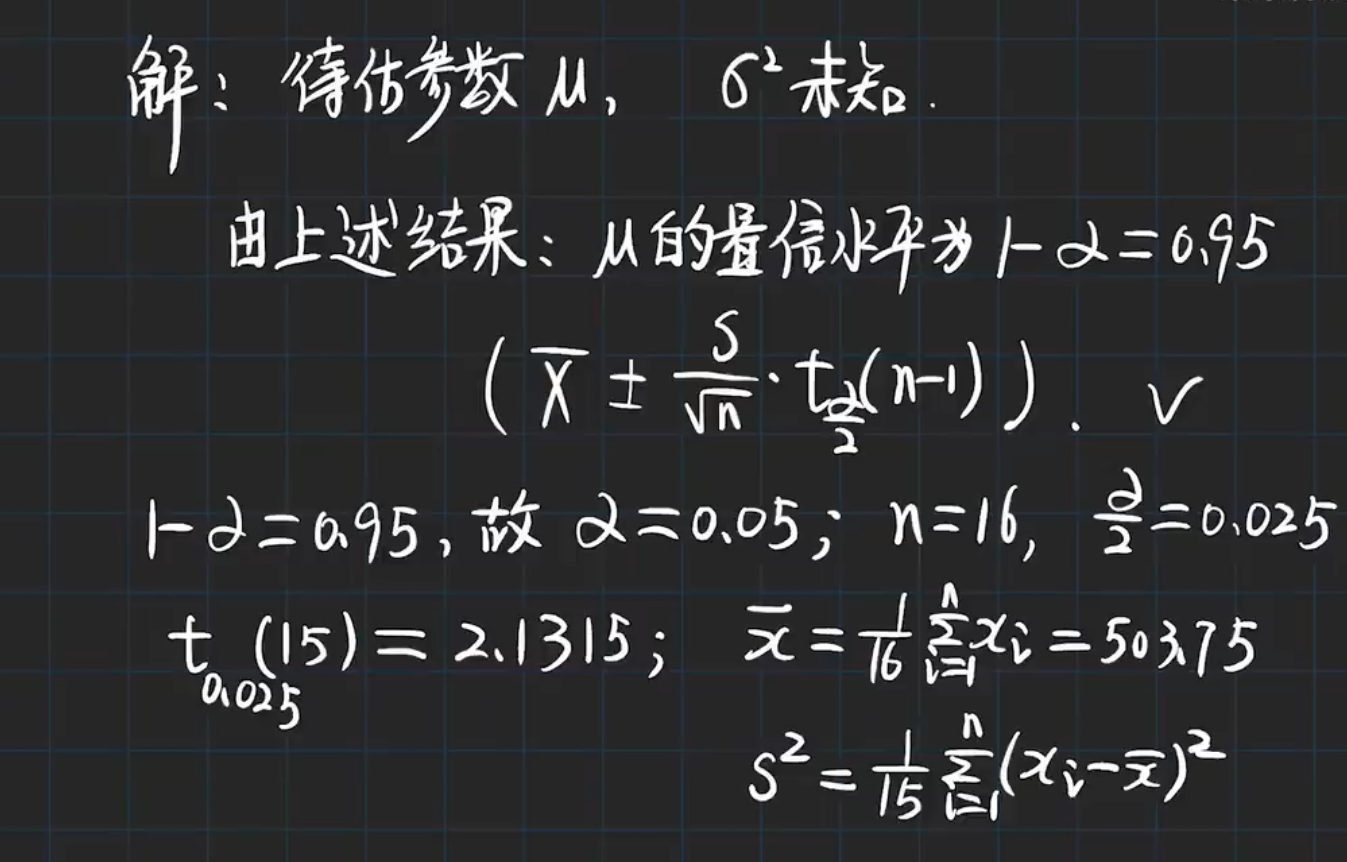 解：待估参数 μ， σ² 未知．
由上述结果：μ的置信水平为 1-α=0.95
( X̄ ± S/√n · t_{α/2}(n-1) )． √
1-α=0.95，故 α=0.05； n=16， α/2=0.025
t_{0.025}(15)=2.1315； x̄=1/16 ∑_{i=1}^{n} x_i=503.75
S²=1/15 ∑_{i=1}^{n}(x_i-x̄)²